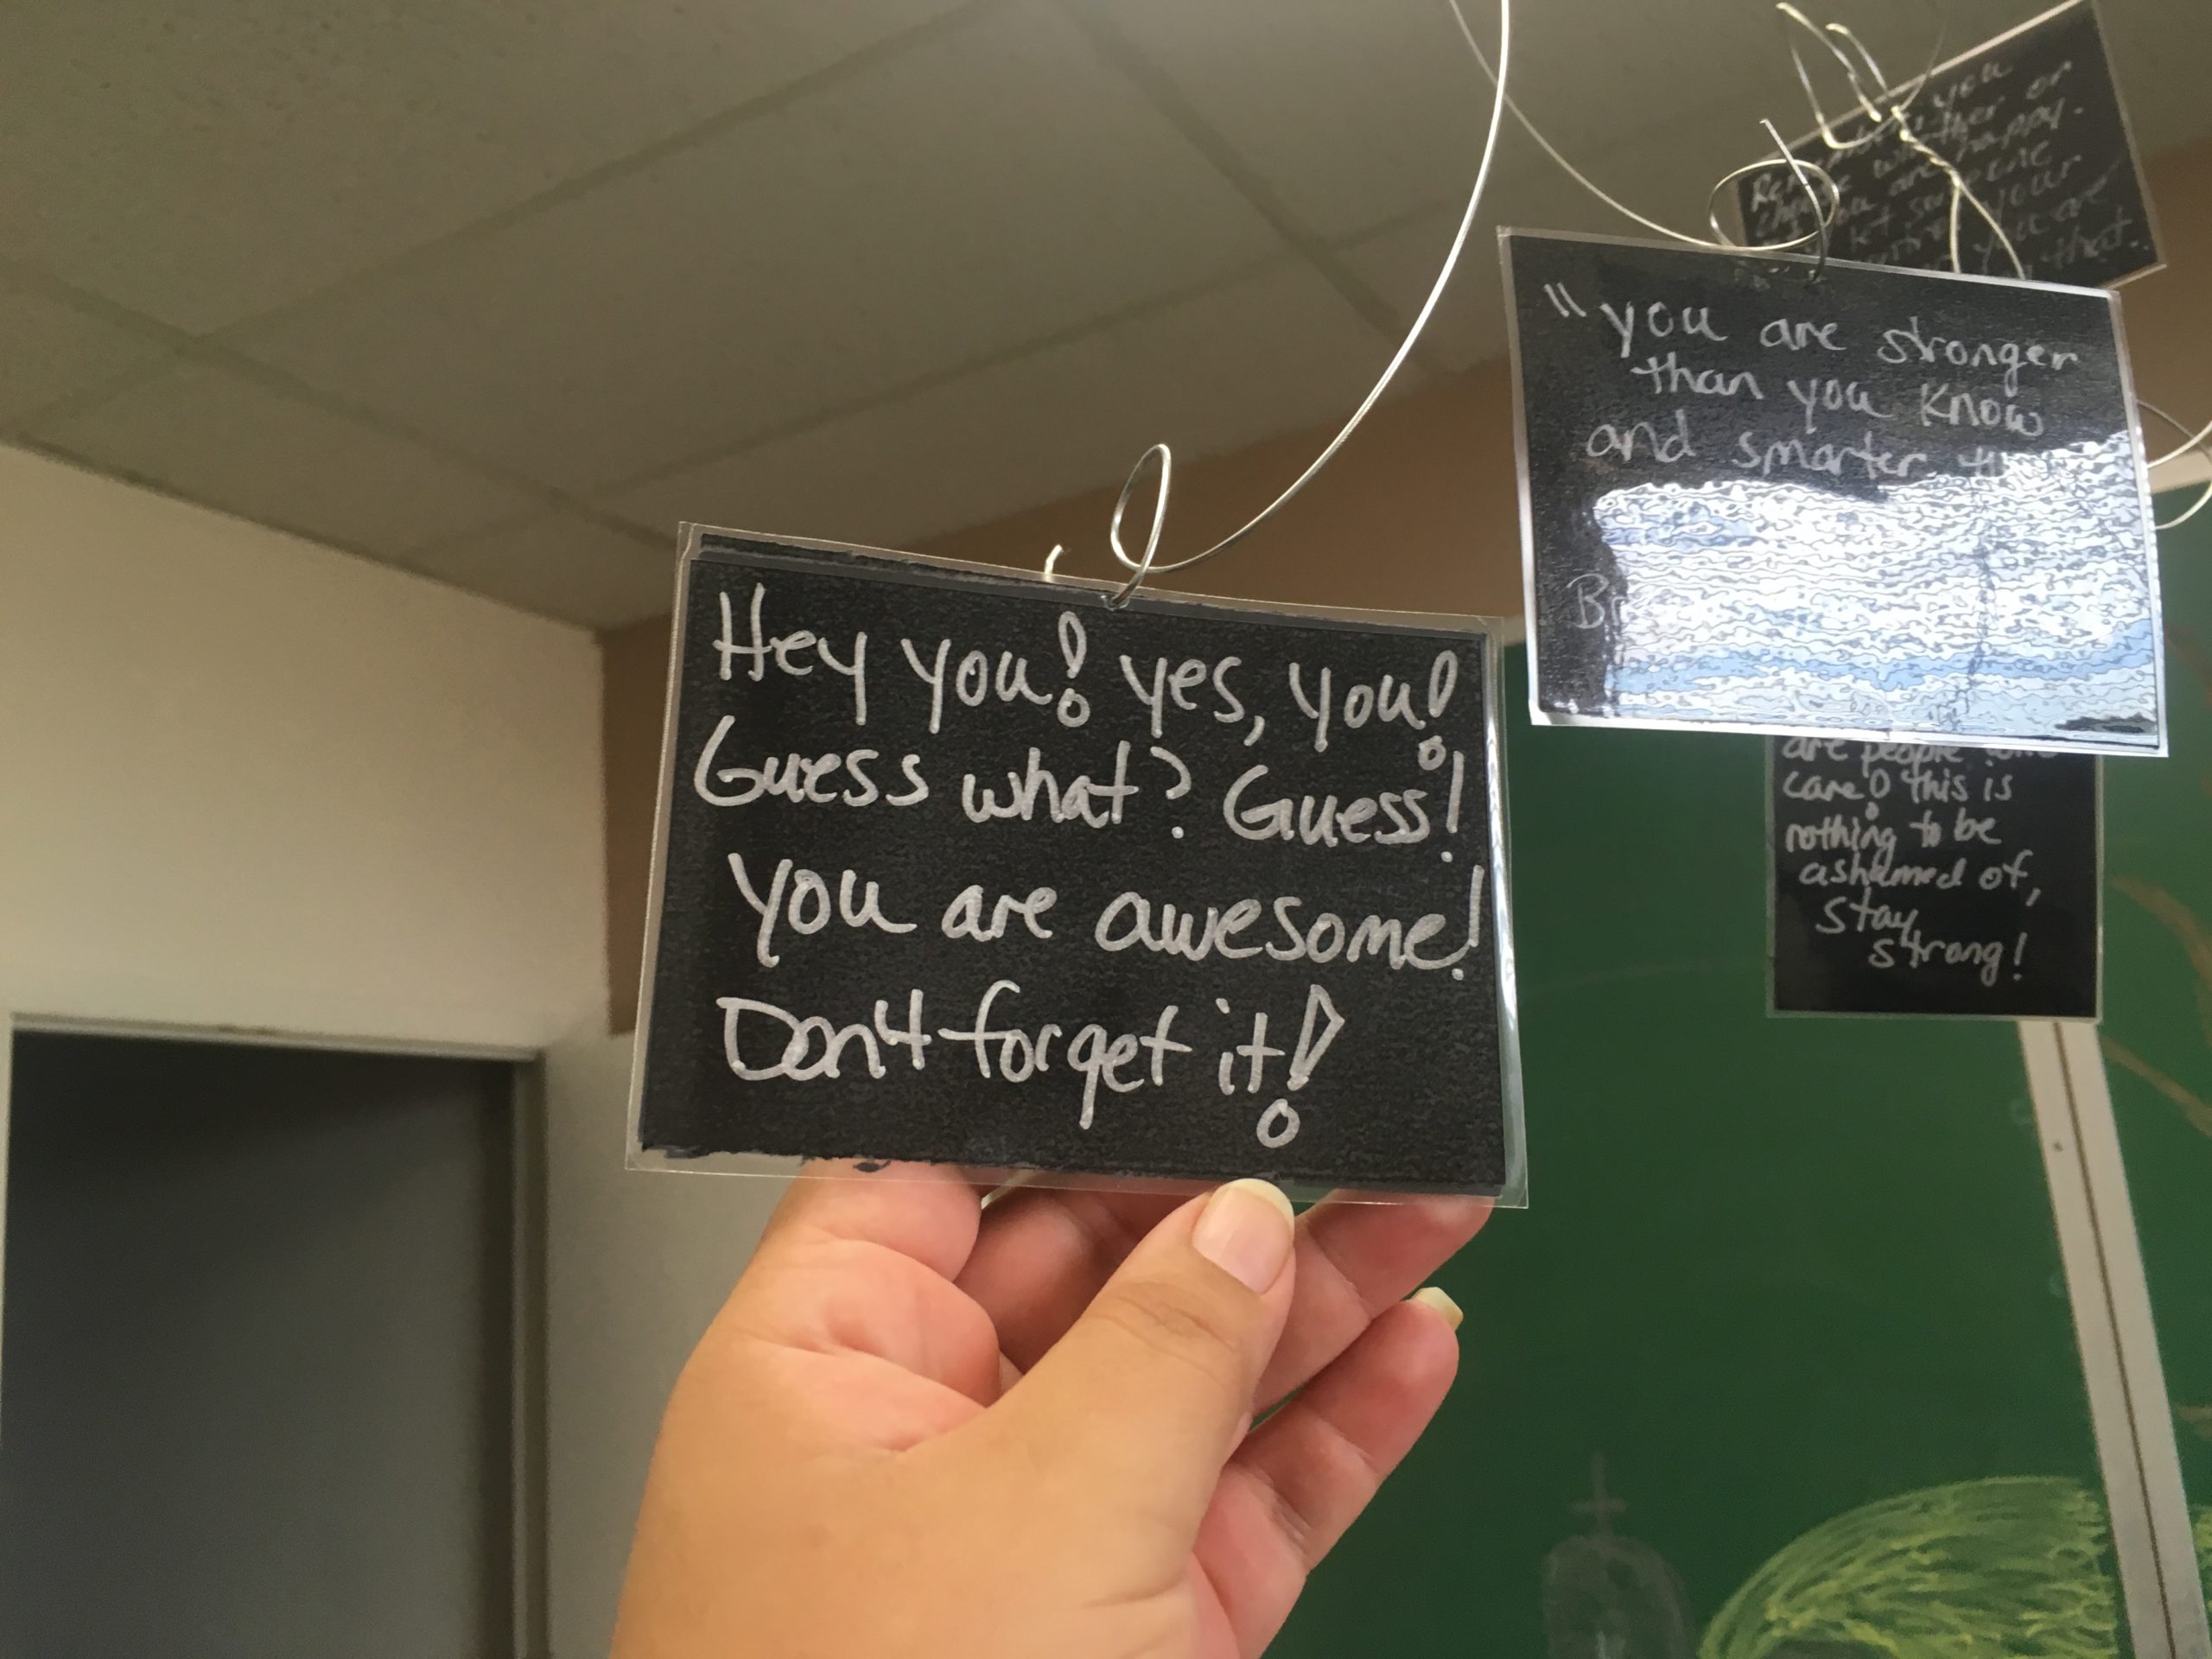 Hey you! yes, you!
Guess what? Guess!
you are awesome!
Don't forget it!
"you are stronger
than you know
and smarter
you
or
happy.
you are
that.
are people
care! this is
nothing to be
ashamed of,
stay
strong!